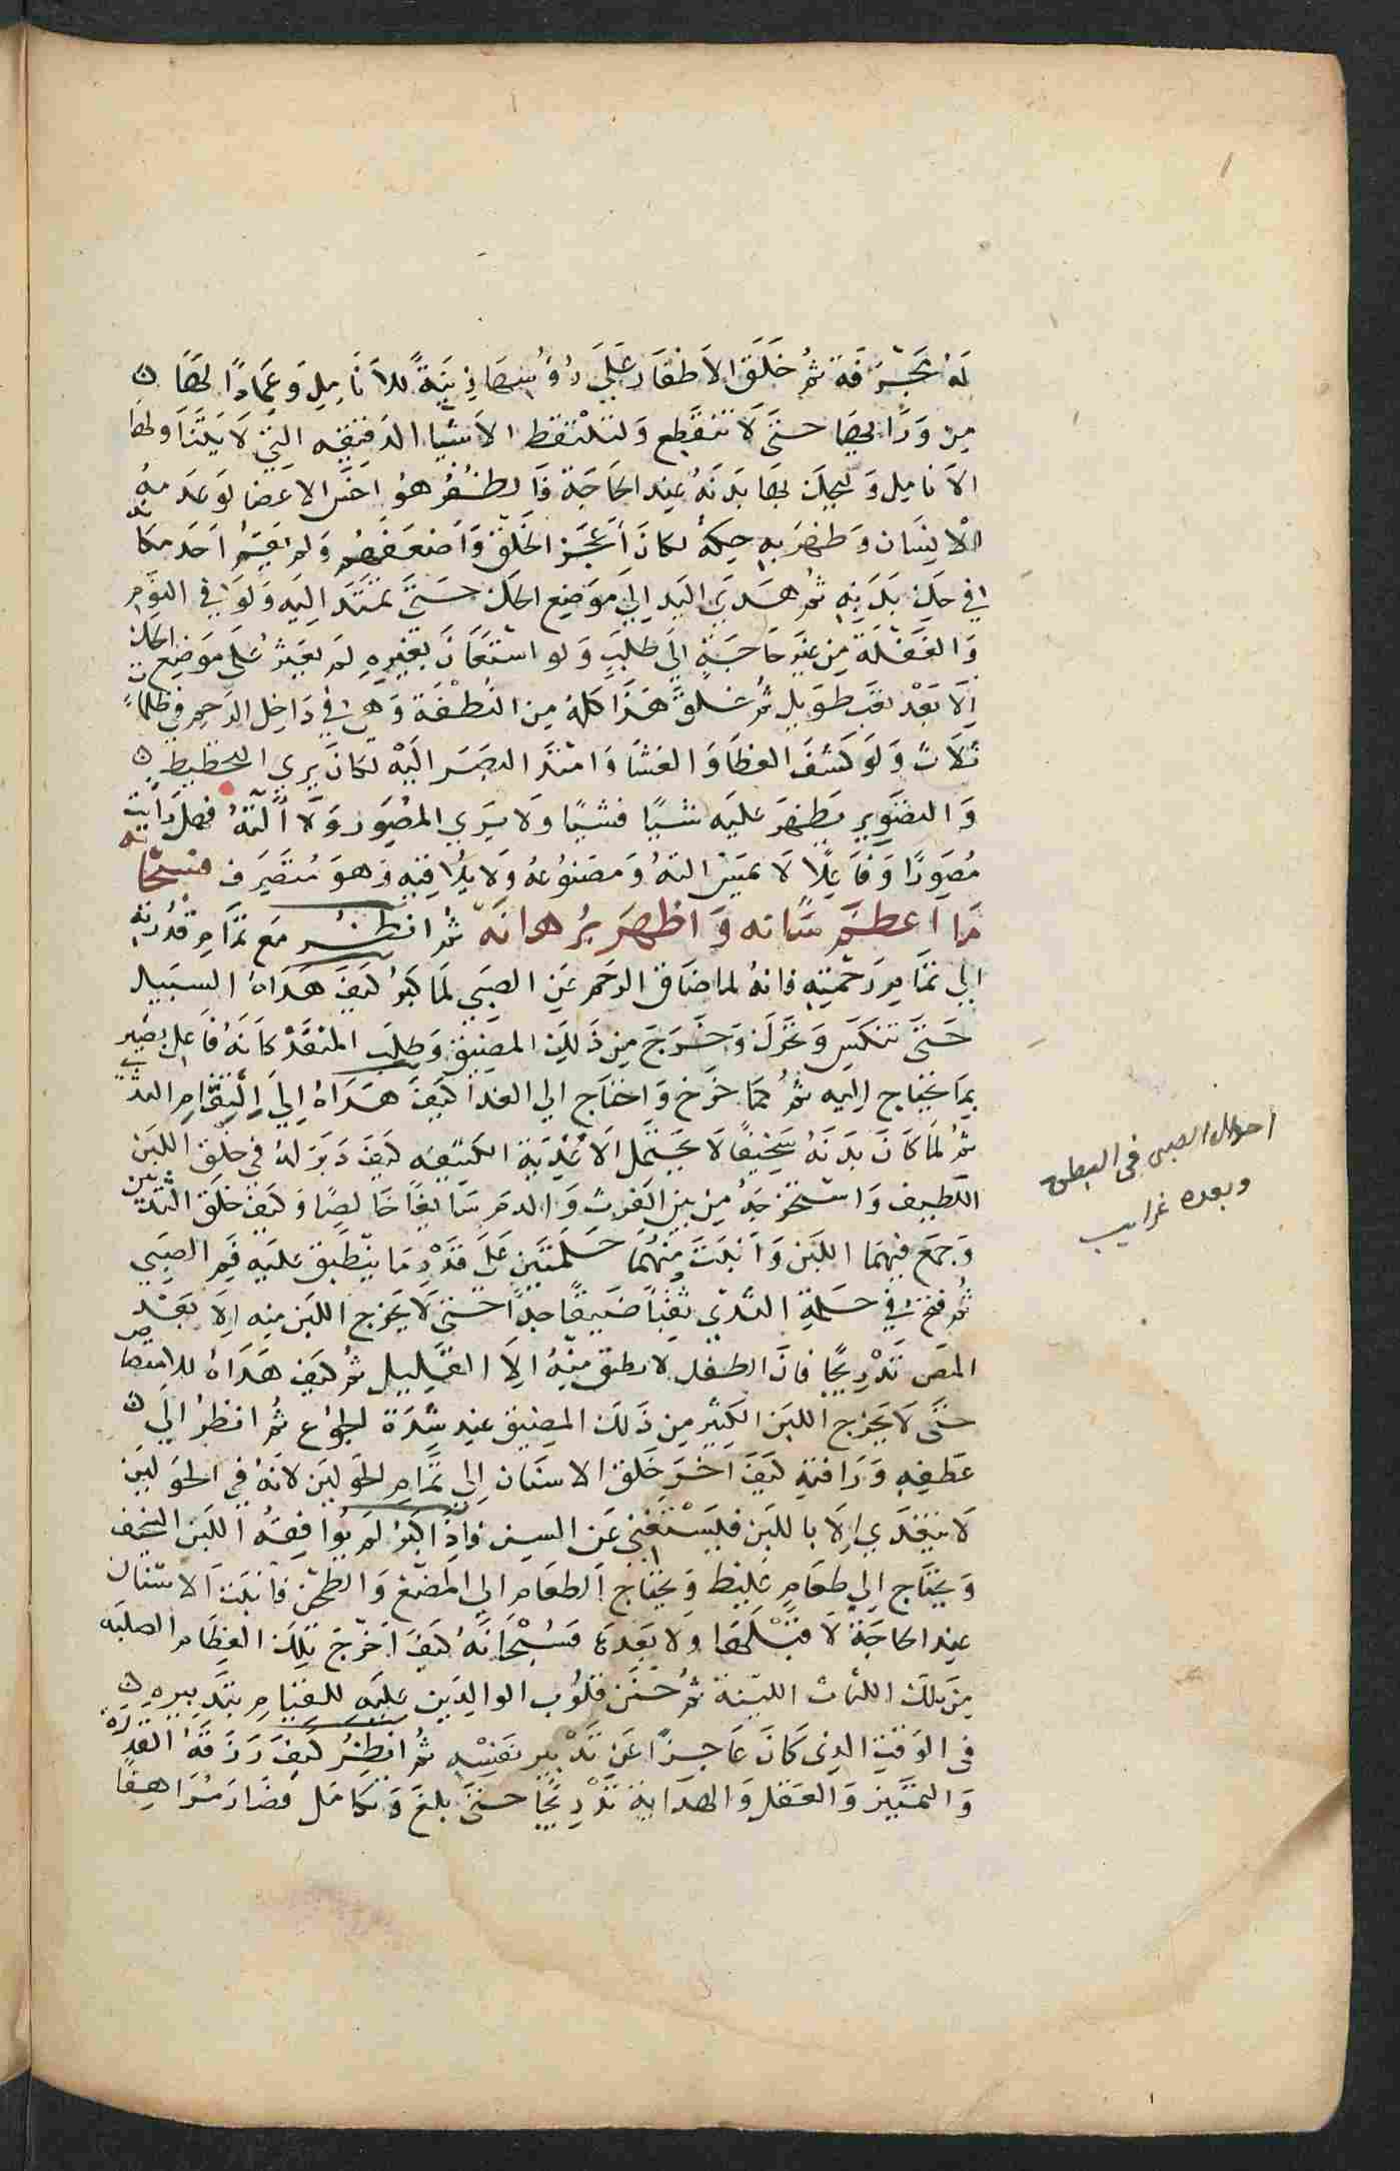 له مجرفة ثم خلق الاظفار على رؤسها زينة للانامل وعمادًا لها
من ورائها حتى لا تتقطع ولتلتقط الاشيا الدقيقه التي لا يتناولها
الانامل وليحك بها بدنه عند الحاجة والظفر هو اخس الاعضا لو عدمه
الانسان وظهر به حكة لكان أعجز الخلق واضعفهم ولم يقم احد مكانه
في حك بدنه ثم هدى اليد الي موضع الحك حتى تمتد اليه ولو في النوم
والغفلة من غير حاجة الي طلب ولو استعان بغيره لم يعثر على موضع الحك
الا بعد تعب طويل ثم خلق هذا كله من النطفة وهي في داخل الرحم في ظلمات
ثلاث ولو كشف الغطا والغشا وامتد البصر اليه لكان يري التخطيط
والتصوير يظهر عليه شيئا فشيئا ولا يري المصور ولا آلته فهل رأيت
مصورًا وفاعلًا لا يمس آلته ومصنوعه ولا يلاقيه وهو متصرف فسبحانه
ما اعظم شانه واظهر برهانه ثم انظر مع تمام قدرته
الي تمام رحمته فانه لما ضاق الرحم عن الصبي لما كبر كيف هداه السبيل
حتى تنكس وتحرك وخرج من ذلك المضيق وطلب المنفذ كانه فاعل بصير
بما يحتاج اليه ثم لما خرج واحتاج الي الغدا كيف هداه الي التقام الثدي
ثم لما كان بدنه سخيفًا لا يحتمل الاغذية الكثيفه كيف دبر له في خلق اللبن
اللطيف واستخرجه من بين الفرث والدم سائغًا خالصًا وكيف خلق الثديين
وجمع فيهما اللبن وانبت منهما حلمتين على قدر ما ينطبق عليه فم الصبي
ثم فتح في حلمة الثدي ثقبًا ضيقًا جدًا حتى لا يخرج اللبن منه الا بعد
المص تدريجًا فان الطفل لا يطيق منه الا القليل ثم كيف هداه للامتصاص
حتى لا يخرج اللبن الكثير من ذلك المضيق عند شدة الجوع ثم انظر الي
عطفه ورافته كيف اخر خلق الاسنان الي تمام الحولين لانه في الحولين
لا يتغدي الا باللبن فيستغني عن السن واذا كبر لم يوافقه اللبن السخيف
ويحتاج الي طعام غليظ ويحتاج الطعام الي المضغ والطحن فانبت الاسنان
عند الحاجة لا قبلها ولا بعدها فسبحانه كيف اخرج تلك العظام الصلبه
من تلك اللثات اللينة ثم حنن قلوب الوالدين عليه للقيام بتدبيره
في الوقت الذي كان عاجزًا عن تدبير نفسه ثم انظر كيف رزقه القدرة
والتمييز والعقل والهداية تدريجًا حتى بلغ وتكامل فصار مراهقًا
احوال الصبى فى البطن
وبعده غرايب